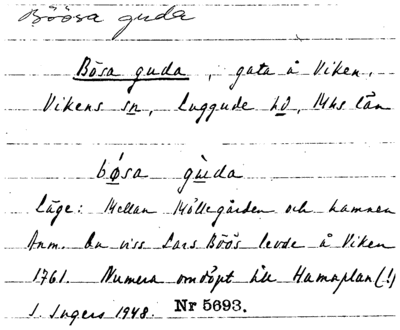 Böösa guda
Bösa guda, gata å Viken,
Vikens sn, Luggude hd, Mhs län
bø̀sa gùda
Läge: Mellan Möllegården och hamnen
Anm. En viss Lars Böös levde å Viken
1761. Numera omdöpt till Hamnplan (!)
I. Ingers 1948. Nr 5693.